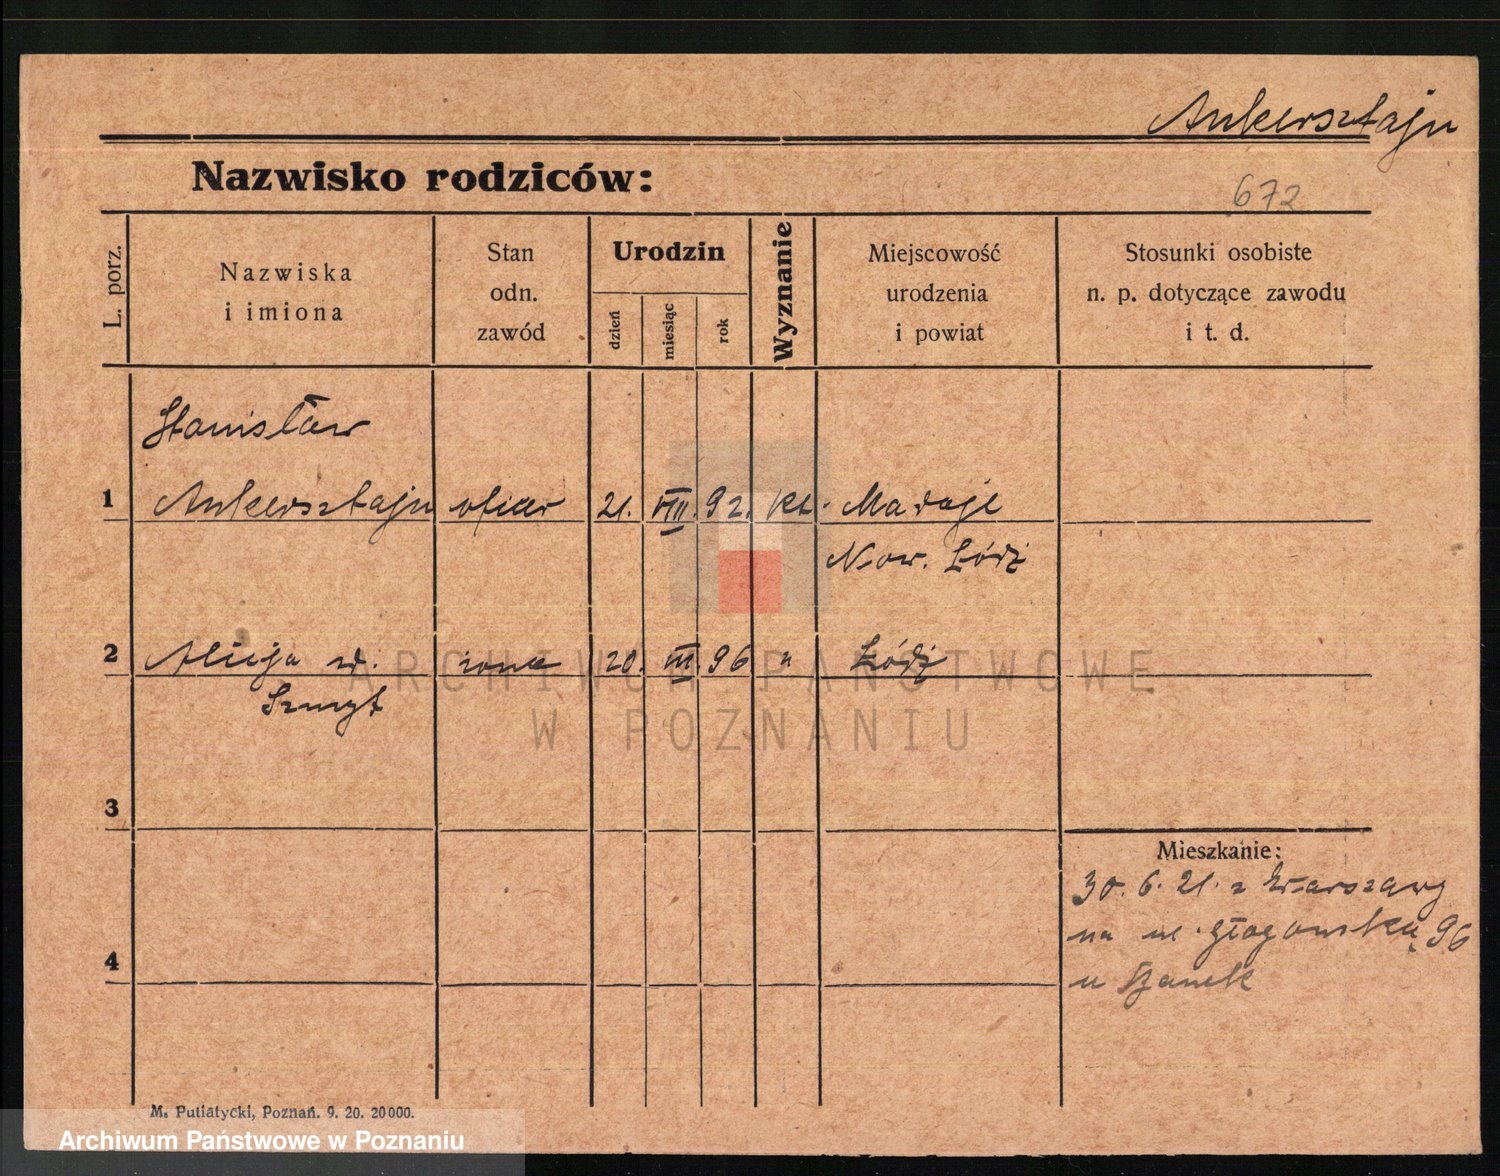 Ankersztajn
Nazwisko rodziców:
672
L. porz.
Nazwiska
i imiona
Stan
odn.
zawód
Urodzin
dzień
miesiąc
rok
Wyznanie
Miejscowość
urodzenia
i powiat
Stosunki osobiste
n. p. dotyczące zawodu
i t. d.
Stanisław
1 Ankersztajn oficer 21. VIII. 92. kt.
Now. Łódź
2 Alicja żona 20. III. 96 "  Łódź
Szmyt
3
4
Mieszkanie:
30. 6. 21. z Warszawy
na ul. Głogowską 96
u
M. Putiatycki, Poznań. 9. 20. 20000.
ARCHIWUM PAŃSTWOWE
W POZNANIU
Archiwum Państwowe w Poznaniu